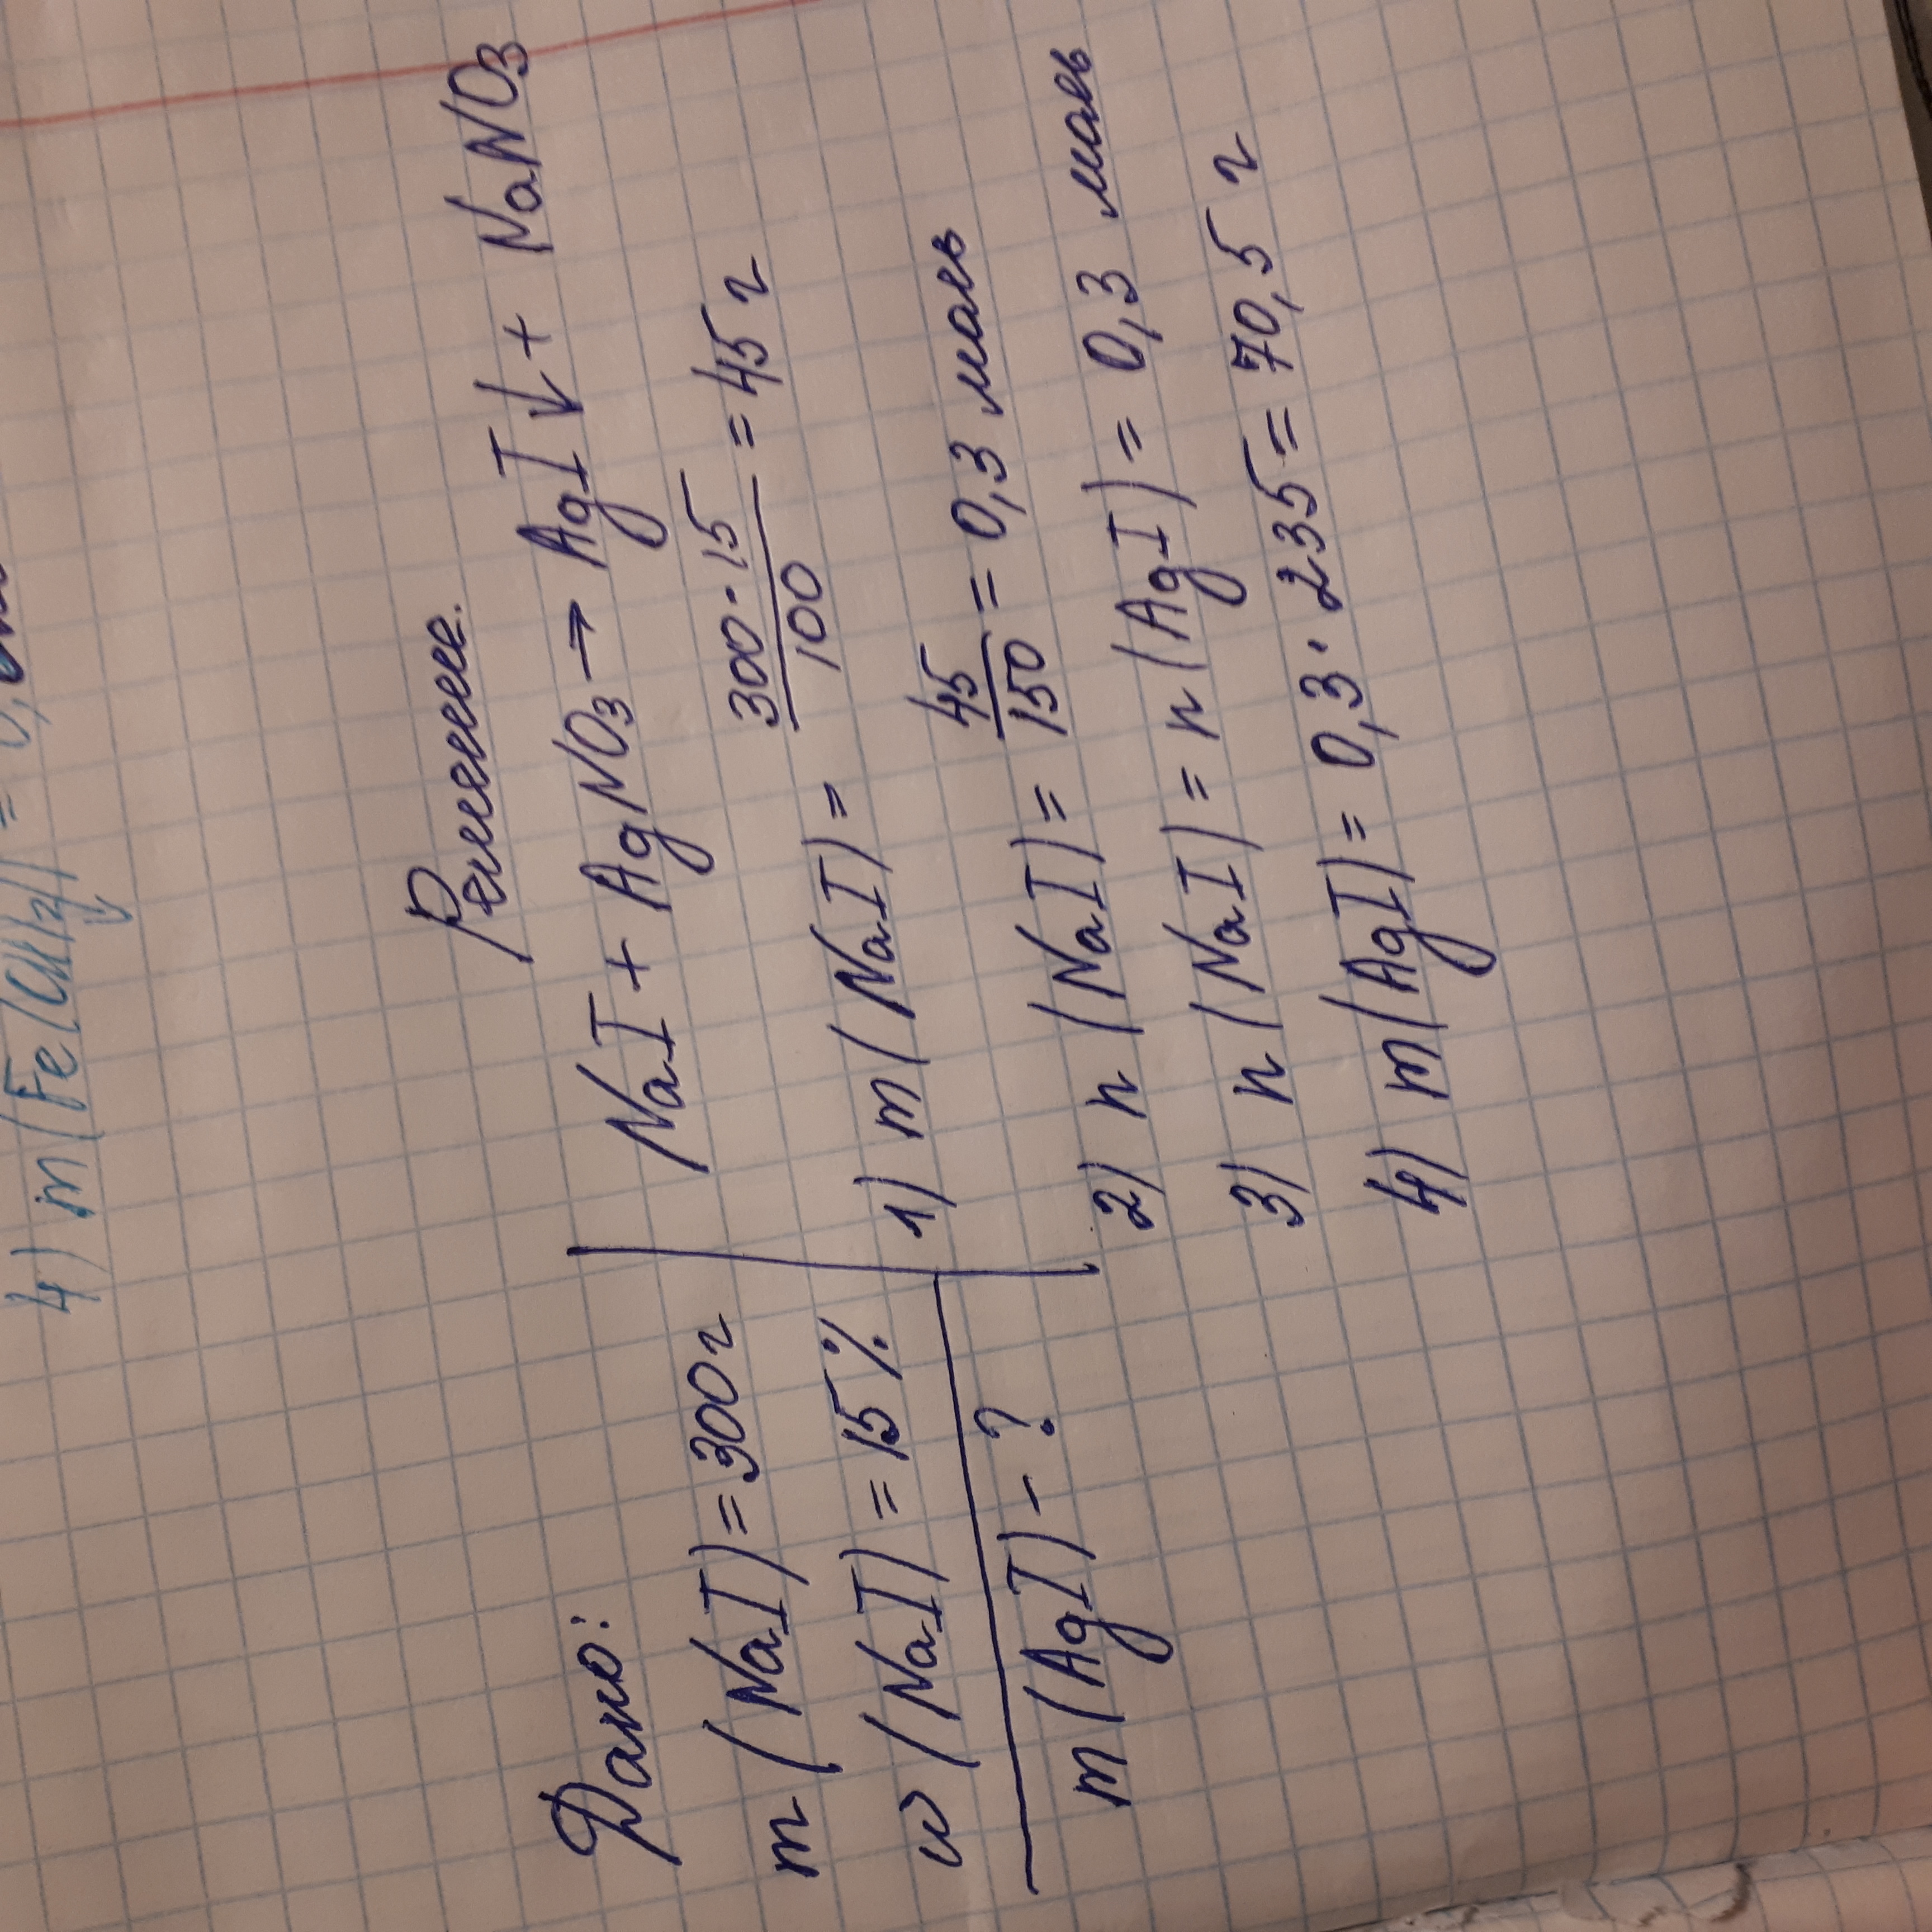 4) m(Fe(OH)2) = 0,
Дано:
m (NaI) = 300г
w (NaI) = 15%
m (AgI) - ?
Решение.
NaI + AgNO3 → AgI↓ + NaNO3
1) m (NaI) = 300·15/100 = 45 г
2) n (NaI) = 45/150 = 0,3 моль
3) n (NaI) = n (AgI) = 0,3 моль
4) m(AgI) = 0,3·235 = 70,5 г